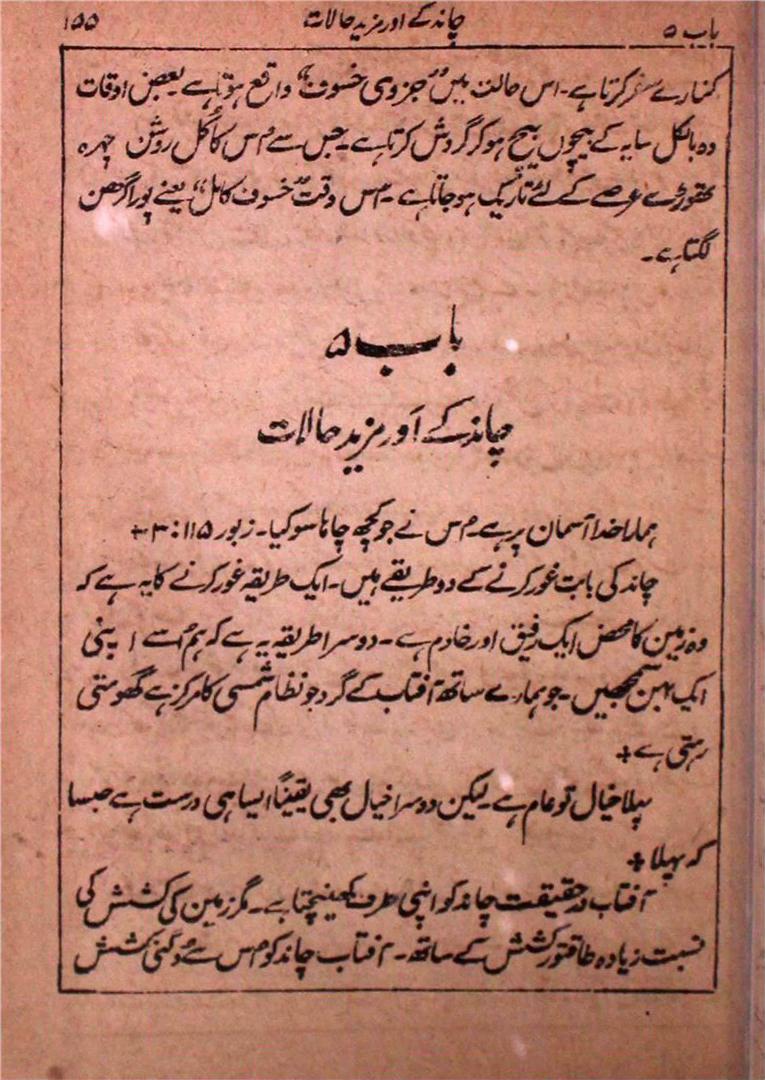 باب ۵ چاند کے اور مزید حالات ۱۵۵
کنارے سفر کرتا ہے۔ اس حالت میں "جزوی خسوف" واقع ہوتا ہے۔ بعض اوقات
وہ بالکل سایہ کے بیچوں بیچ ہو کر گردش کرتا ہے۔ جس سے اُس کا کُل روشن چہرہ
تھوڑے عرصے کے لئے تاریک ہو جاتا ہے۔ اُس وقت "خسوف کامل" یعنے پورا گرھن
لگتا ہے۔
باب ۵
چاند کے اَور مزید حالات
ہمارا خدا آسمان پر ہے۔ اُس نے جو کچھ چاہا سو کیا۔ زبور ۱۱۵: ۳+
چاند کی بابت غور کرنے کے دو طریقے ہیں۔ ایک طریقہ غور کرنے کا یہ ہے کہ
وہ زمین کا محض ایک رفیق اور خادم ہے۔ دوسرا طریقہ یہ ہے کہ ہم اُسے اپنی
ایک بہن سمجھیں۔ جو ہمارے ساتھ آفتاب کے گرد جو نظام شمسی کا مرکز ہے گھومتی
رہتی ہے+
پہلا خیال تو عام ہے۔ لیکن دوسرا خیال بھی یقیناً ایسا ہی درست ہے جیسا
کہ پہلا+
آفتاب در حقیقت چاند کو اپنی طرف کھینچتا ہے۔ مگر زمین کی کشش کی
نسبت زیادہ طاقتور کشش کے ساتھ۔ آفتاب چاند کو اُس سے دُگنی کشش